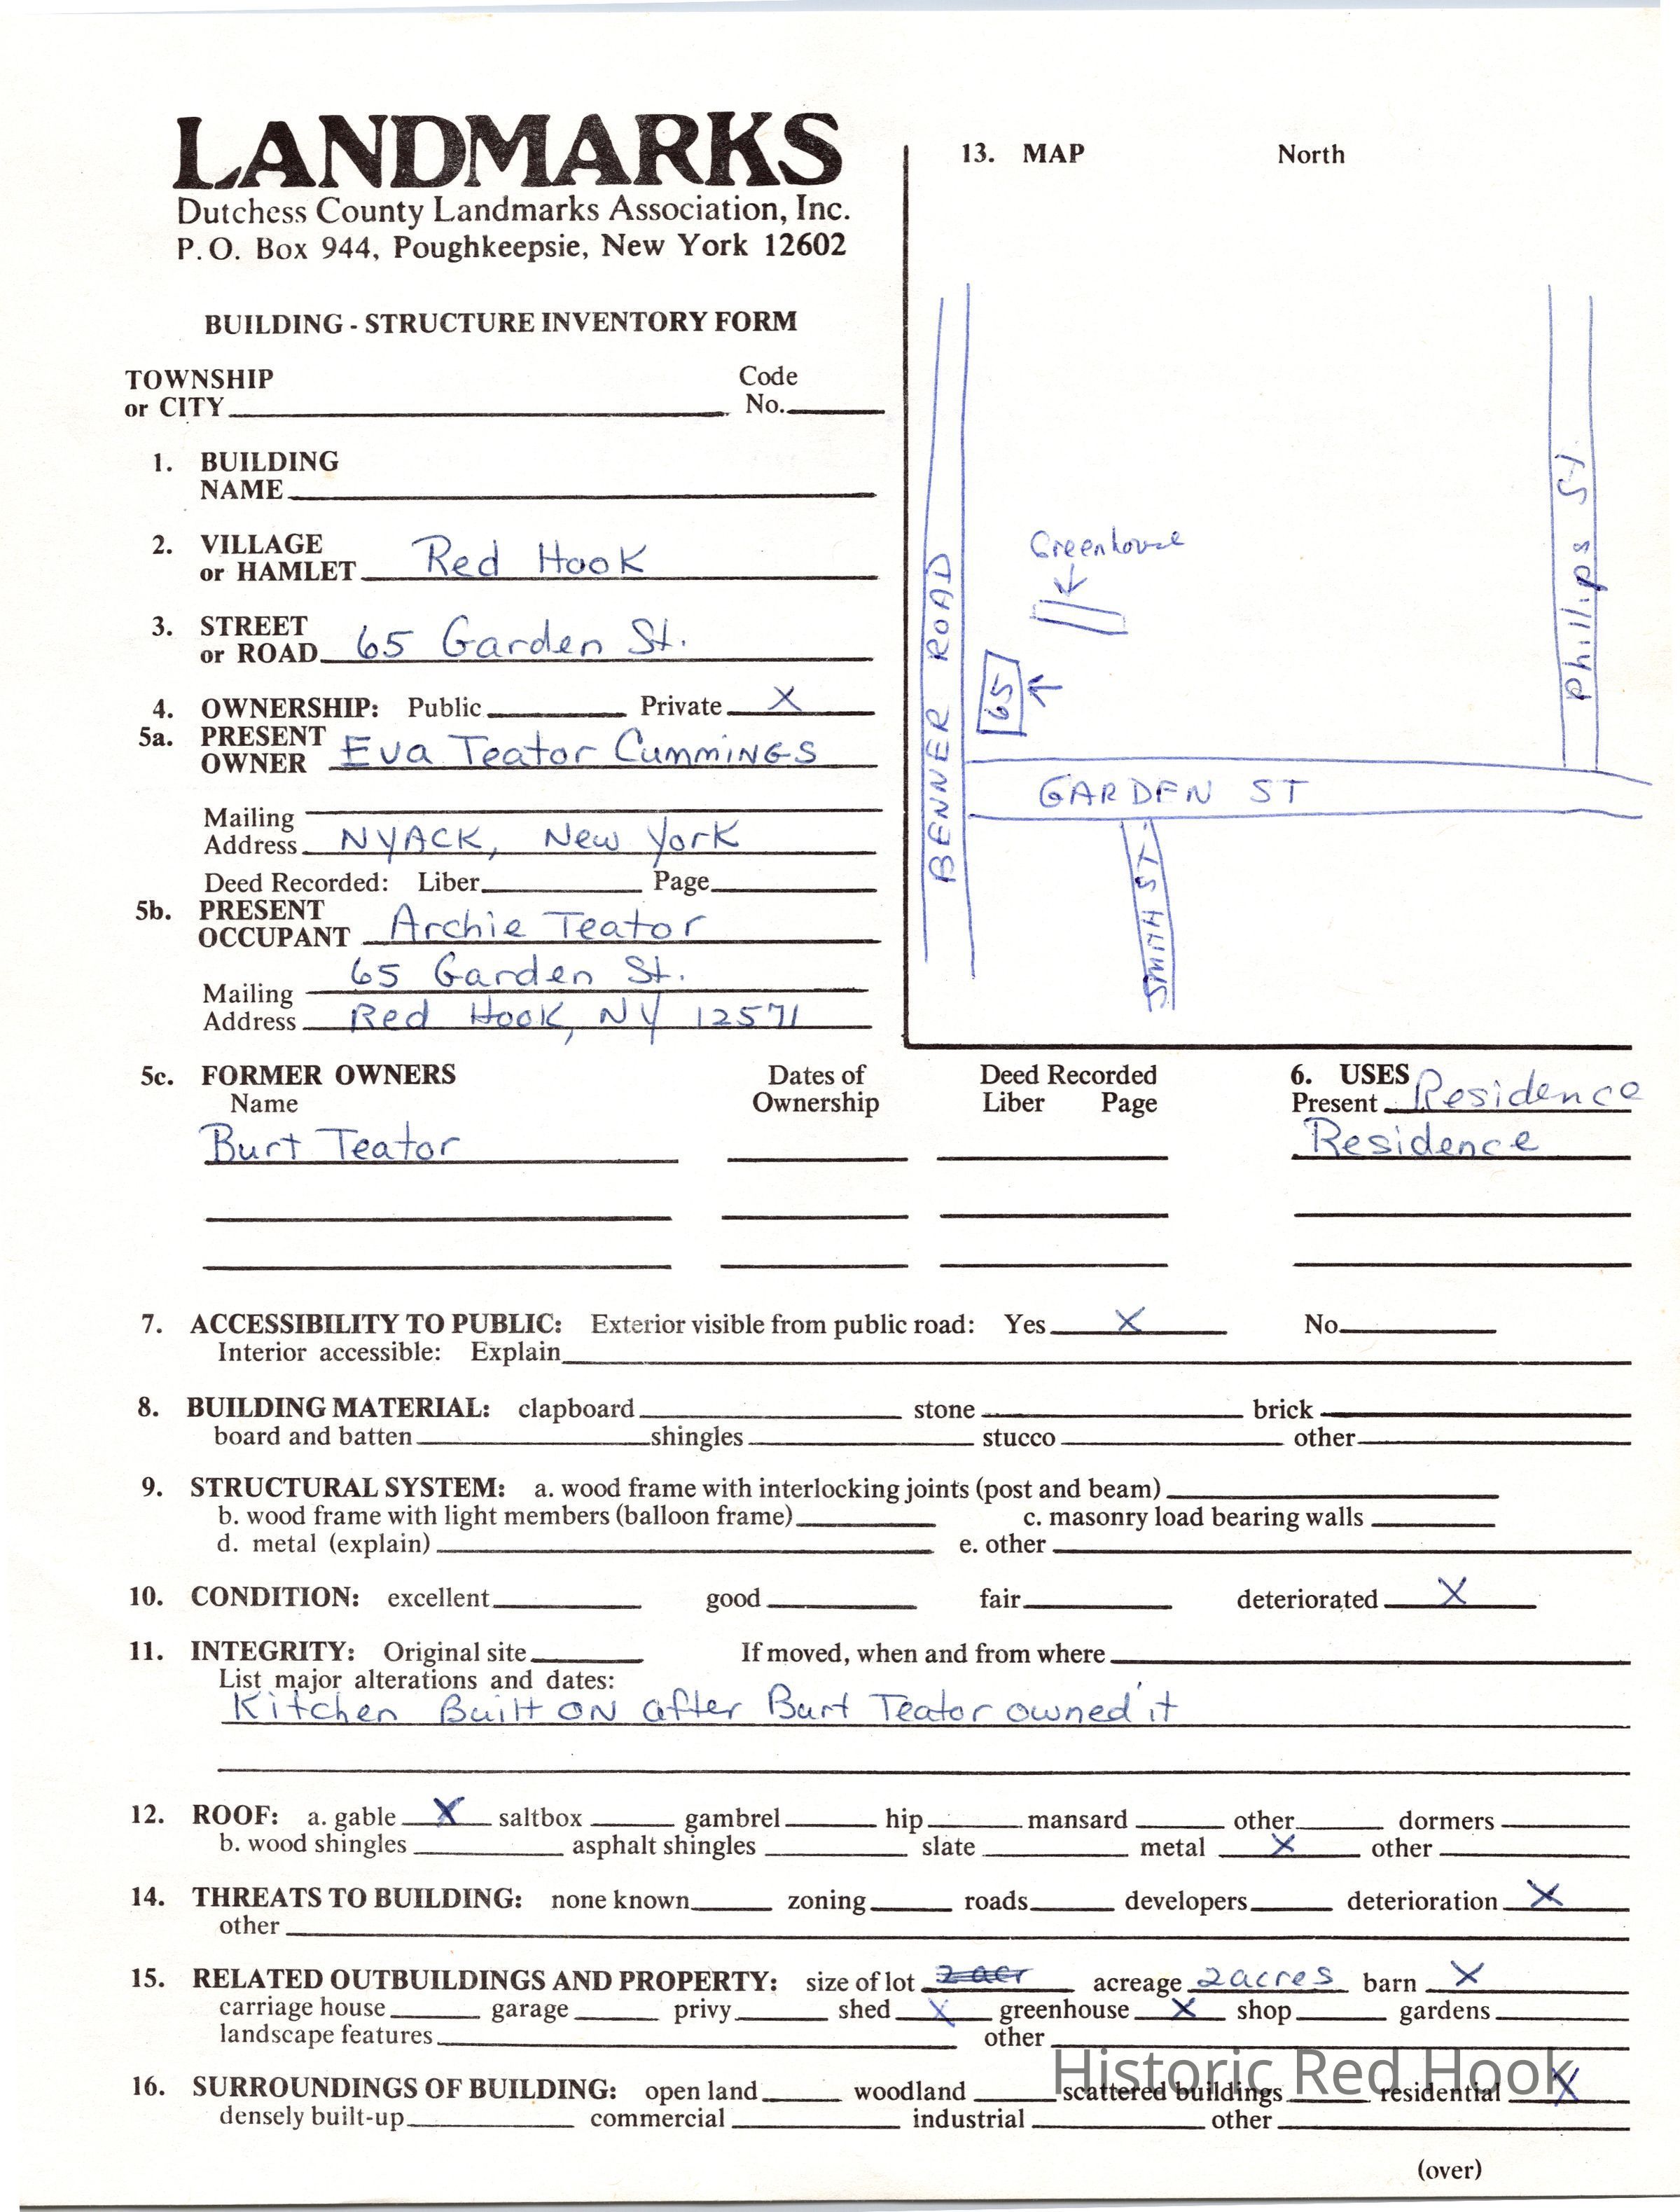 LANDMARKS
Dutchess County Landmarks Association, Inc.
P.O. Box 944, Poughkeepsie, New York 12602
BUILDING - STRUCTURE INVENTORY FORM
TOWNSHIP Code
or CITY No.
1. BUILDING
NAME
2. VILLAGE
or HAMLET Red Hook
3. STREET
or ROAD 65 Garden St.
4. OWNERSHIP: Public Private X
5a. PRESENT
OWNER Eva Teator CummINGS
Mailing
Address NYACK, New York
Deed Recorded: Liber Page
5b. PRESENT
OCCUPANT Archie Teator
65 Garden St.
Mailing
Address Red Hook, NY 12571
13. MAP North
BENNER ROAD
Greenhouse
65
Phillips St
GARDEN ST
SMITH ST.
5c. FORMER OWNERS Dates of Deed Recorded 6. USES
Name Ownership Liber Page Present Residence
Burt Teator Residence
7. ACCESSIBILITY TO PUBLIC: Exterior visible from public road: Yes X No
Interior accessible: Explain
8. BUILDING MATERIAL: clapboard stone brick
board and batten shingles stucco other
9. STRUCTURAL SYSTEM: a. wood frame with interlocking joints (post and beam)
b. wood frame with light members (balloon frame) c. masonry load bearing walls
d. metal (explain) e. other
10. CONDITION: excellent good fair deteriorated X
11. INTEGRITY: Original site If moved, when and from where
List major alterations and dates:
Kitchen Built ON after Burt Teator owned it
12. ROOF: a. gable X saltbox gambrel hip mansard other dormers
b. wood shingles asphalt shingles slate metal X other
14. THREATS TO BUILDING: none known zoning roads developers deterioration X
other
15. RELATED OUTBUILDINGS AND PROPERTY: size of lot 2 acr acreage 2 acres barn X
carriage house garage privy shed X greenhouse X shop gardens
landscape features other
16. SURROUNDINGS OF BUILDING: open land woodland scattered buildings residential X
densely built-up commercial industrial other
Historic Red Hook
(over)